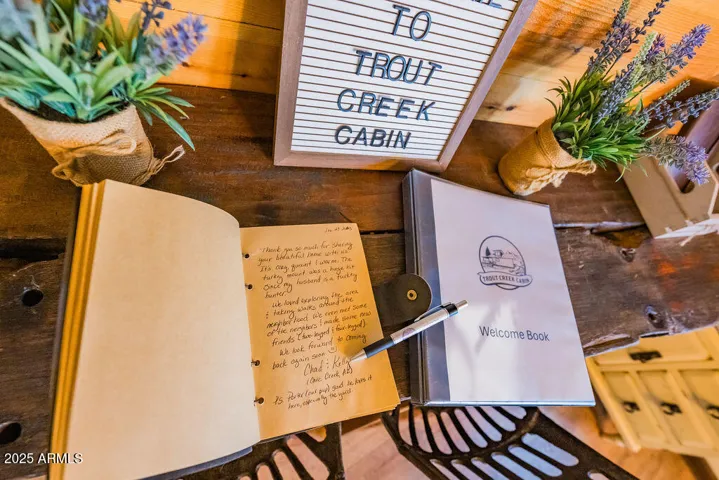 TO
TROUT
CREEK
CABIN
Thank you so much for sharing
your beautiful home with us.
It's cozy, quiet & warm. The
turkey mount was a huge hit
since my husband is a turkey
hunter!
We loved exploring the area
& taking walks around the
neighborhood. We even met some
of the neighbors & made some new
friends (two-legged & four-legged).
We look forward to coming
back again soon
Chad & Kelly
Cave Creek, AZ
PS. Porter (our pup) good he loves it
here, especially the yard!
TROUT CREEK CABIN
Welcome Book
2025 ARMLS